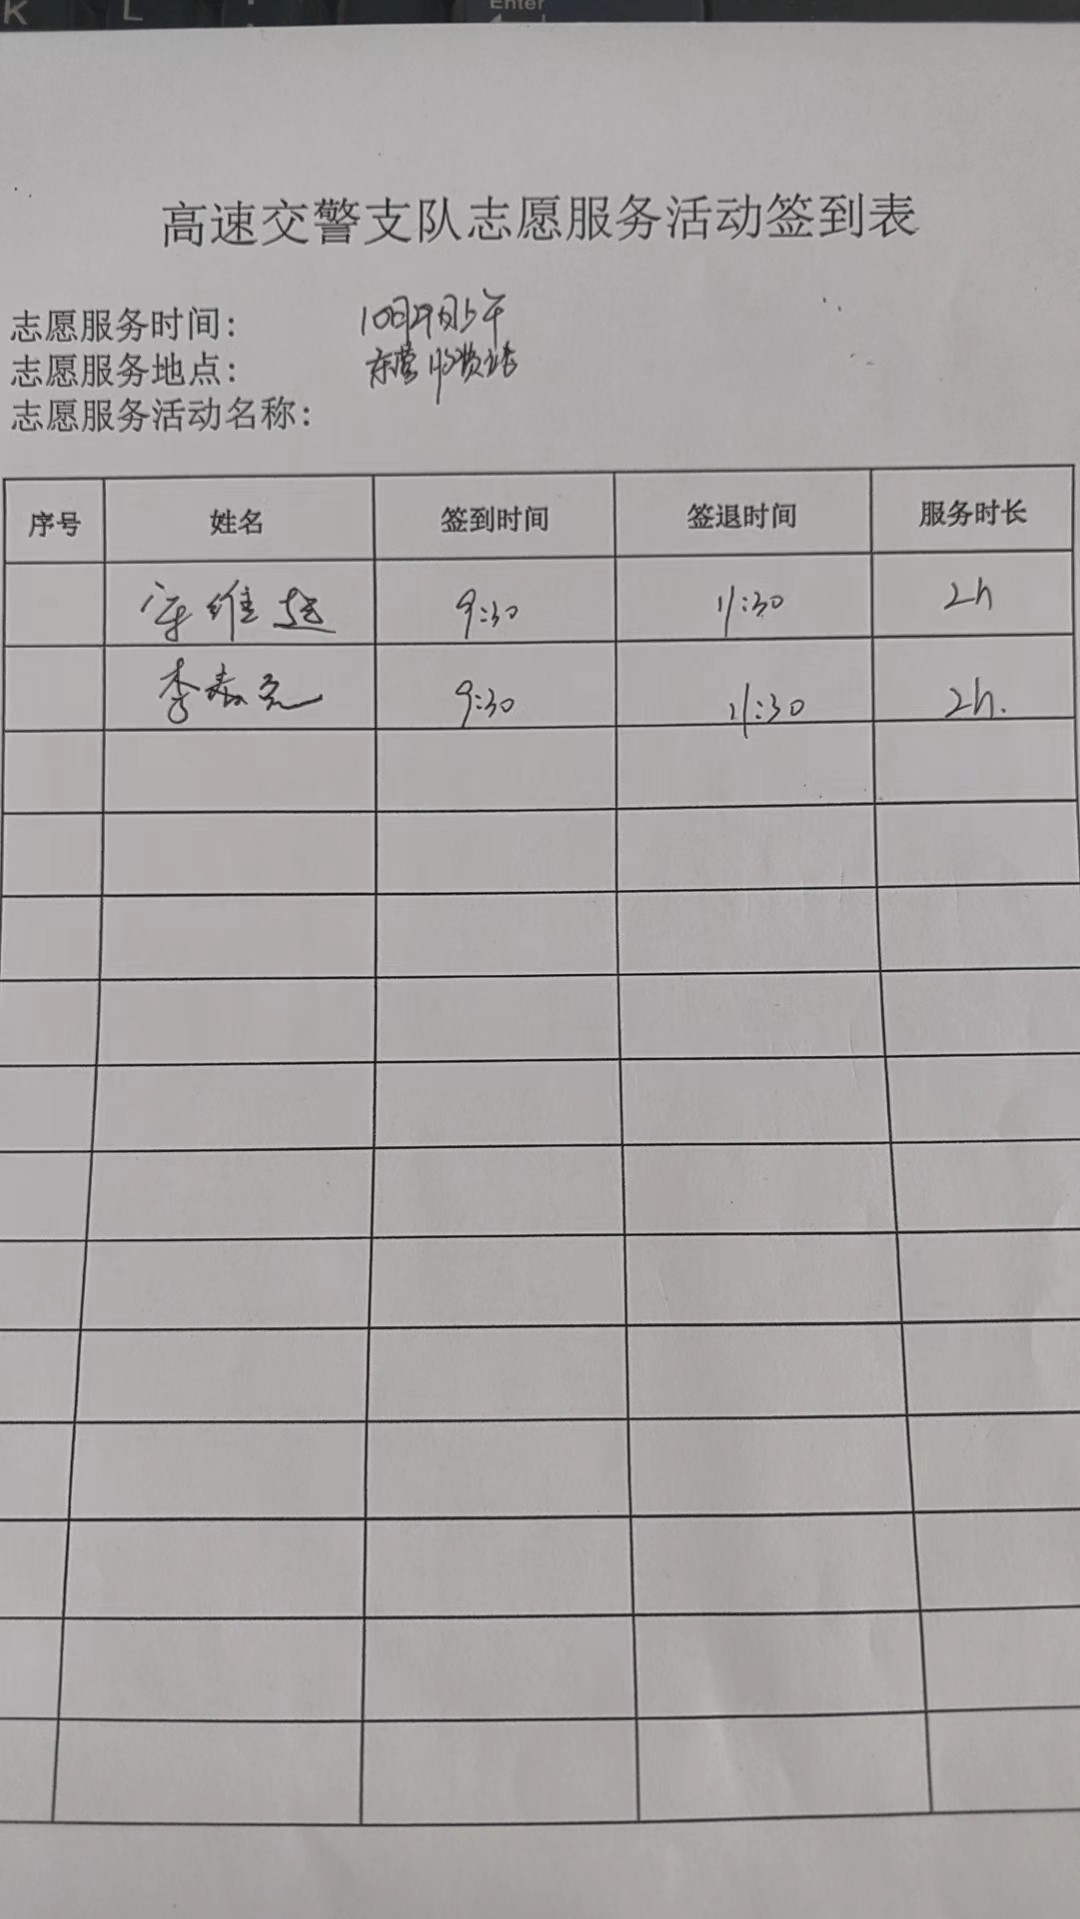 K L Enter
高速交警支队志愿服务活动签到表
志愿服务时间：
志愿服务地点： 东营收费站
志愿服务活动名称：
序号 姓名 签到时间 签退时间 服务时长
维 9:30 11:30 2h
李 9:30 11:30 2h.